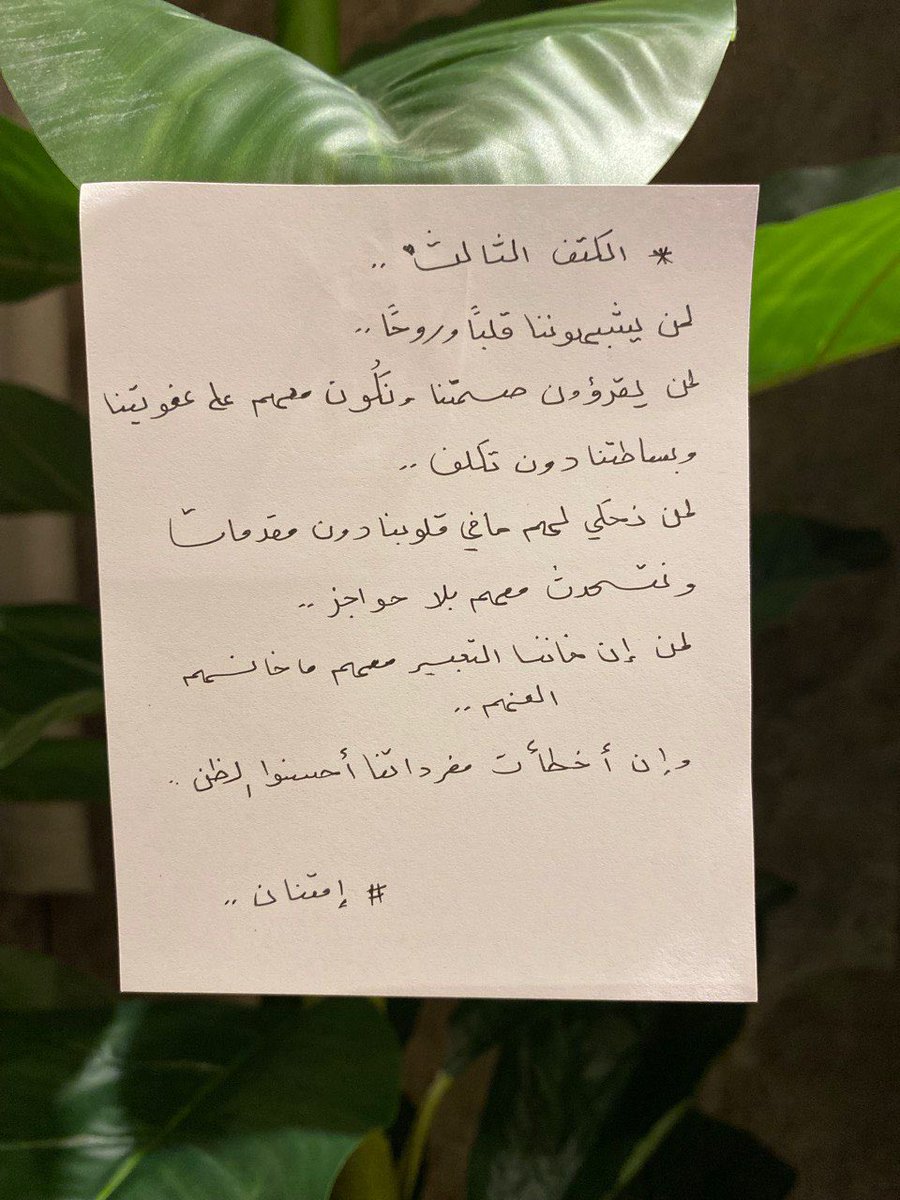 * الكتف الثالث ..
لمن يشبهوننا قلبًا وروحًا ..
لمن يقرؤون صمتنا ونكُون معهم على عفويتنا
وبساطتنا دون تكلف ..
لمن نحكي لهم مافي قلوبنا دون مقدمات
ونتحدث معهم بلا حواجز ..
لمن إن خاننا التعبير معهم ماخانهم
الفهم ..
وإن أخطأت مفرداتنا أحسنوا الظن ..
# إمتنان ..